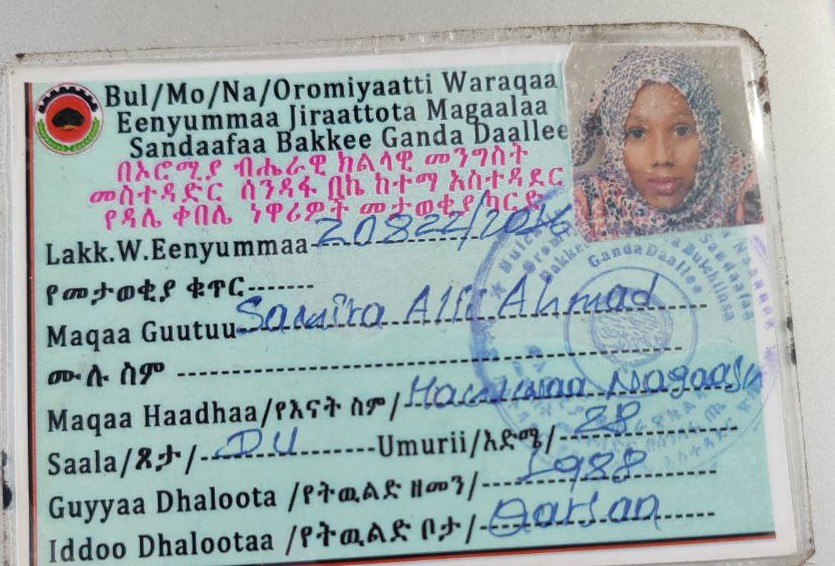 Bul/Mo/Na/Oromiyaatti Waraqaa
Eenyummaa Jiraattota Magaalaa
Sandaafaa Bakkee Ganda Daallee
በኦሮሚያ ብሔራዊ ክልላዊ መንግስት
መስተዳድር ሰንዳፋ በኬ ከተማ አስተዳደር
የዳሌ ቀበሌ ነዋሪዎች መታወቂያ ካርድ
Lakk.W.Eenyummaa 20822/2016
የመታወቂያ ቁጥር-------
Maqaa Guutuu Samira Ahmad
ሙሉ ስም
Maqaa Haadhaa/የእናት ስም/
Saala/ጾታ/ DU Umurii/እድሜ/ 28
Guyyaa Dhaloota /የትዉልድ ዘመን/ 1988
Iddoo Dhalootaa /የትዉልድ ቦታ/
Ganda Daallee